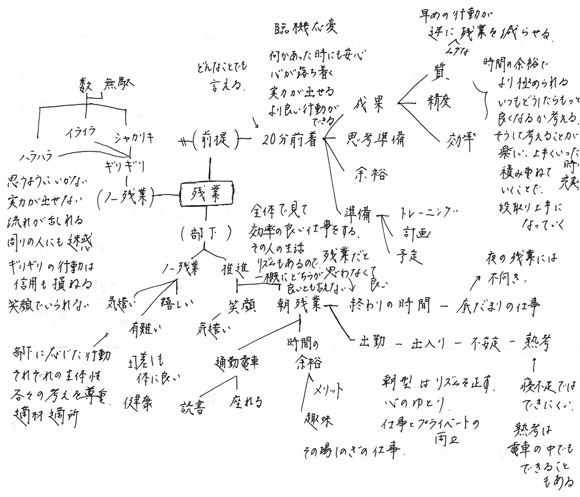 臨機応変
早めの行動が
逆に残業を減らせる。
数 無駄
どんなことでも
言える。
何かあった時にも安心
心が落ち着く
実力が出せる
より良い行動が
できる
質
成果
精度
効率
時間の余裕で
より極められる
いつもどうしたらもっと
良くなるか考える。
そして考えることが
楽しい、上手くいった
積み重ねて
いくことで、
段取り上手に
なっていく
イライラ
シャカリキ
ハラハラ
ギリギリ
(前提)
20分前着
思考準備
余裕
準備
トレーニング
計画
予定
思うようにいかない
実力が出せない
流れが乱れる
周りの人にも迷惑
ギリギリの行動は
信用も損ねる
笑顔でいられない
(ノー残業)
残業
(部下)
全体で見て
効率の良い仕事をする。
その人の生活
リズムもあるので、
一概にどちらが
良いとも言えない
残業だと
思わなくて
良い
ノー残業
推進
気遣い
嬉しい
有難い
気遣い
笑顔
朝残業
終わりの時間
先だまりの仕事
夜の残業には
不向き。
出勤
出入り
不安定
熟考
部下に応じた行動
それぞれの主体性
各々の考えを尊重
適材適所
時差にも
体に良い
健康
通勤電車
読書
座れる
時間の
余裕
メリット
趣味
その場しのぎの仕事。
朝型はリズムを正す。
心のゆとり
仕事とプライベートの
両立
寝不足では
できにくい。
熟考は
電車の中でも
できること
もある